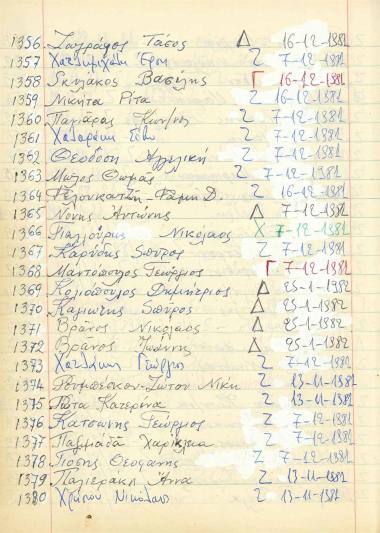 1356 Ζωγράφος Τάσος Δ 16-12-1981
1357 Χατζημιχάλη Έρση Ζ 7-12-1981
1358 Σκυλάκος Βασίλης Γ 16-12-1981
1359 Νικήτα Ρίτα Ζ 16-12-1981
1360 Παλιάρας Ζ 7-12-1981
1361 Ζ 7-12-1981
1362 Θεοδόση Αγγελική Ζ 7-12-1981
1363 Μώρος Θωμάς Ζ 7-12-1981
1364 Δ. Ζ 16-12-1981
1365 Νόνης Αντώνης Δ 7-12-1981
1366 Νικόλαος Χ 7-12-1981
1367 Καρύδης Σπύρος Ζ 7-12-1981
1368 Μαντόπουλος Γεώργιος Γ 7-12-1981
1369 Κολιόπουλος Δημήτριος Δ 25-1-1982
1370 Καλιώτης Σπύρος Δ 25-1-1982
1371 Βράνος Νικόλαος Δ 25-1-1982
1372 Βράνος Ιωάννης Δ 25-1-1982
1373 Χατζάκη Γεώργιος Ζ 7-12-1981
1374 Νίκη Ζ 13-11-1981
1375 Ρώτα Κατερίνα Ζ 13-11-1981
1376 Κατσώνης Γεώργιος Ζ 7-12-1981
1377 Παξιμαδά Χαρίκλεια Ζ 7-12-1981
1378 Πόσης Θεοφάνης Ζ 7-12-1981
1379 Παλιεράκη Άννα Ζ 13-11-1981
1380 Χρήστου Νικόλαος Ζ 13-11-1981